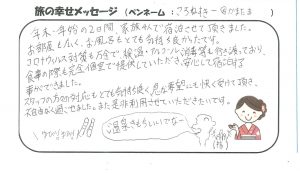 旅の幸せメッセージ (ペンネーム: ころねすき
年末・年始の2日間、家族4人で宿泊させて頂きました。
お部屋も広く、お風呂もとても気持ち良かったです。
コロナウイルス対策も万全で検温・アルコール消毒等も行き渡っており、
食事の際も完全個室で提供していただき、安心して宿泊する
事ができました。
スタッフの方の対応もとても気持ち良く、急な希望にも快く受けて頂き、
不自由なく過ごせました。また是非利用させていただきたいです。
温泉きもちいいでなー